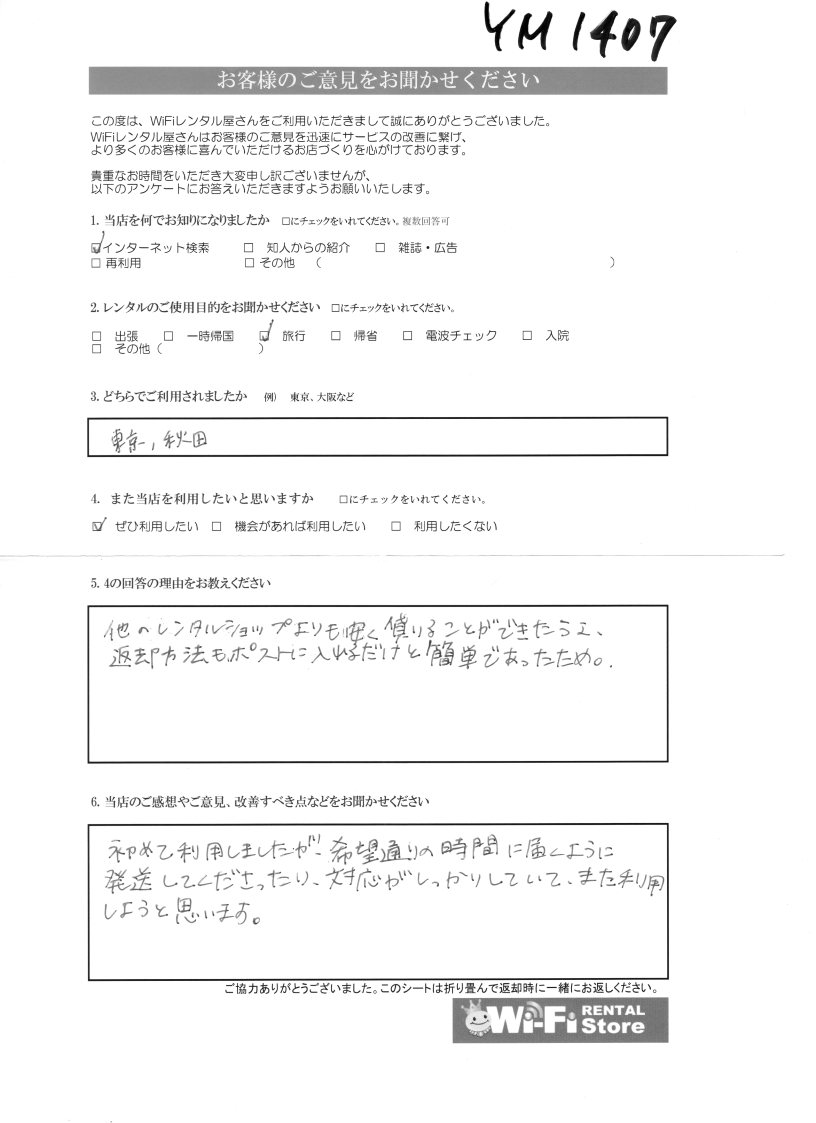 YM1407
お客様のご意見をお聞かせください
この度は、WiFiレンタル屋さんをご利用いただきまして誠にありがとうございました。
WiFiレンタル屋さんはお客様のご意見を迅速にサービスの改善に繋げ、
より多くのお客様に喜んでいただけるお店づくりを心がけております。
貴重なお時間をいただき大変申し訳ございませんが、
以下のアンケートにお答えいただきますようお願いいたします。
1. 当店を何でお知りになりましたか □にチェックをいれてください。複数回答可
☑インターネット検索 □ 知人からの紹介 □ 雑誌・広告
□ 再利用 □ その他 ( )
2. レンタルのご使用目的をお聞かせください □にチェックをいれてください。
□ 出張 □ 一時帰国 ☑ 旅行 □ 帰省 □ 電波チェック □ 入院
□ その他 ( )
3. どちらでご利用されましたか 例) 東京、大阪など
東京、秋田
4. また当店を利用したいと思いますか □にチェックをいれてください。
☑ ぜひ利用したい □ 機会があれば利用したい □ 利用したくない
5. 4の回答の理由をお教えください
他のレンタルショップよりも安く借りることができたうえ、
返却方法もポストに入れるだけと簡単であったため。
6. 当店のご感想やご意見、改善すべき点などをお聞かせください
初めて利用しましたが、希望通りの時間に届くように
発送してくださったり、対応がしっかりしていて、また利用
しようと思います。
ご協力ありがとうございました。このシートは折り畳んで返却時に一緒にお返しください。
Wi-Fi RENTAL Store